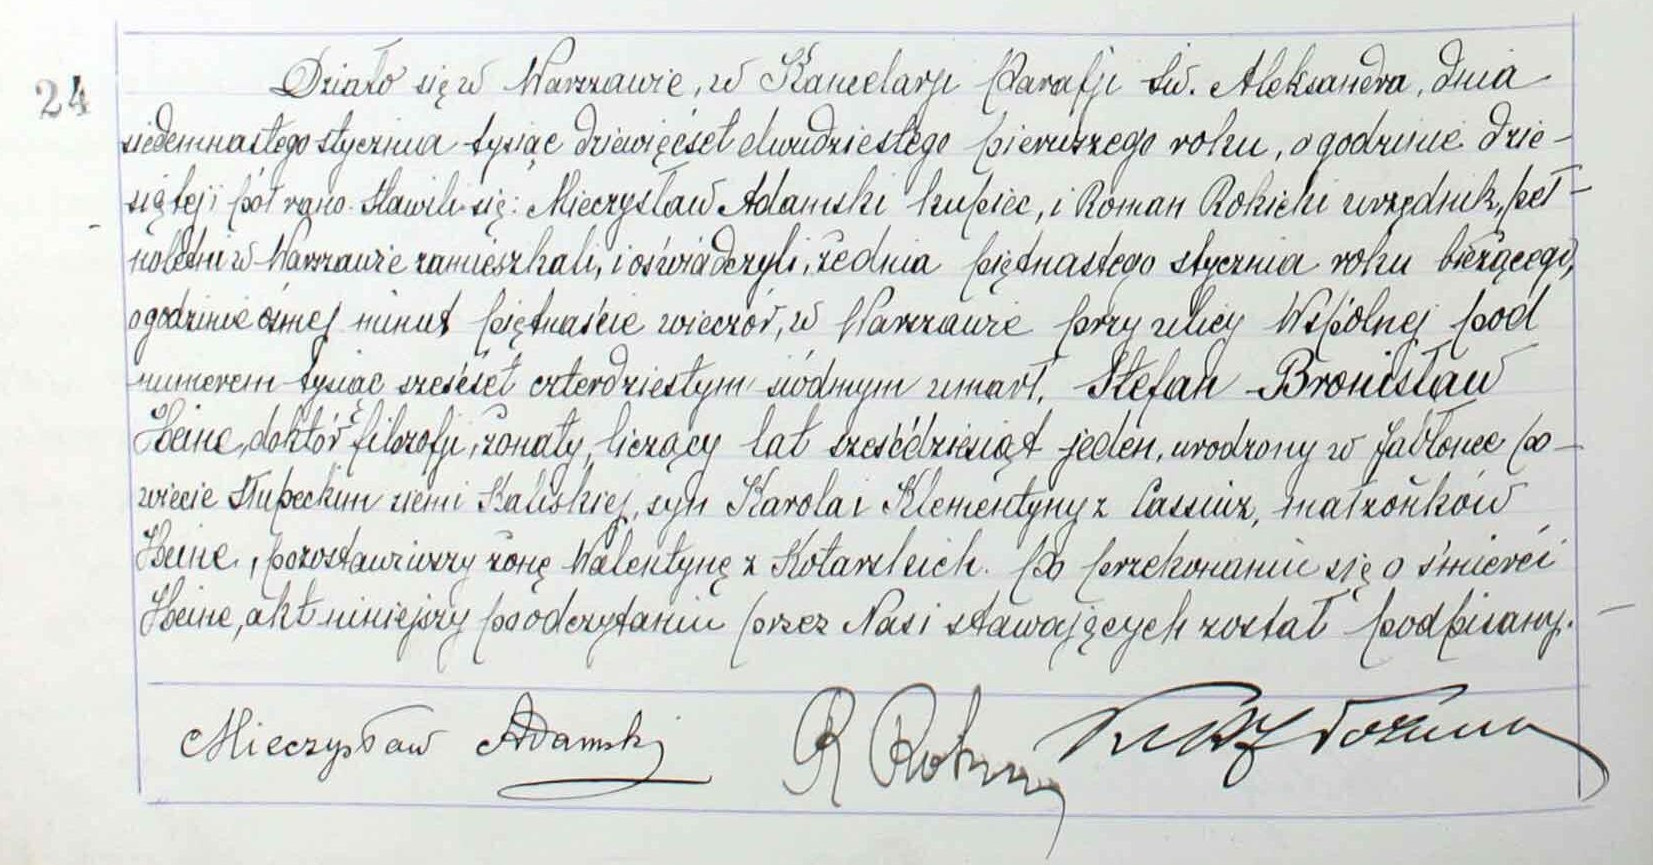 24
Działo się w Warszawie, w Kancelarji Parafji św. Aleksandra, dnia
siedemnastego stycznia tysiąc dziewięćset dwudziestego pierwszego roku, o godzinie dzie-
siątej i pół rano. Stawili się: Mieczysław Adamski kupiec, i Roman Rokicki urzędnik, peł-
noletni w Warszawie zamieszkali, i oświadczyli, że dnia piętnastego stycznia roku bieżącego,
o godzinie ósmej minut piętnaście wieczór, w Warszawie przy ulicy Wspólnej pod
numerem tysiąc sześćset czterdziestym siódmym umarł, Stefan Bronisław
Heine, doktór filozofji, żonaty, liczący lat sześćdziesiąt jeden, urodzony w Jabłonce po-
wiecie Słupeckim ziemi Kaliskiej, syn Karola i Klementyny z Cassiusz, małżonków
Heine, pozostawiwszy żonę Walentynę z Kotarskich. Po przekonaniu się o śmierci
Heine, akt niniejszy po odczytaniu przez Nas i stawających został podpisany.
Mieczysław Adamski R Rokicki